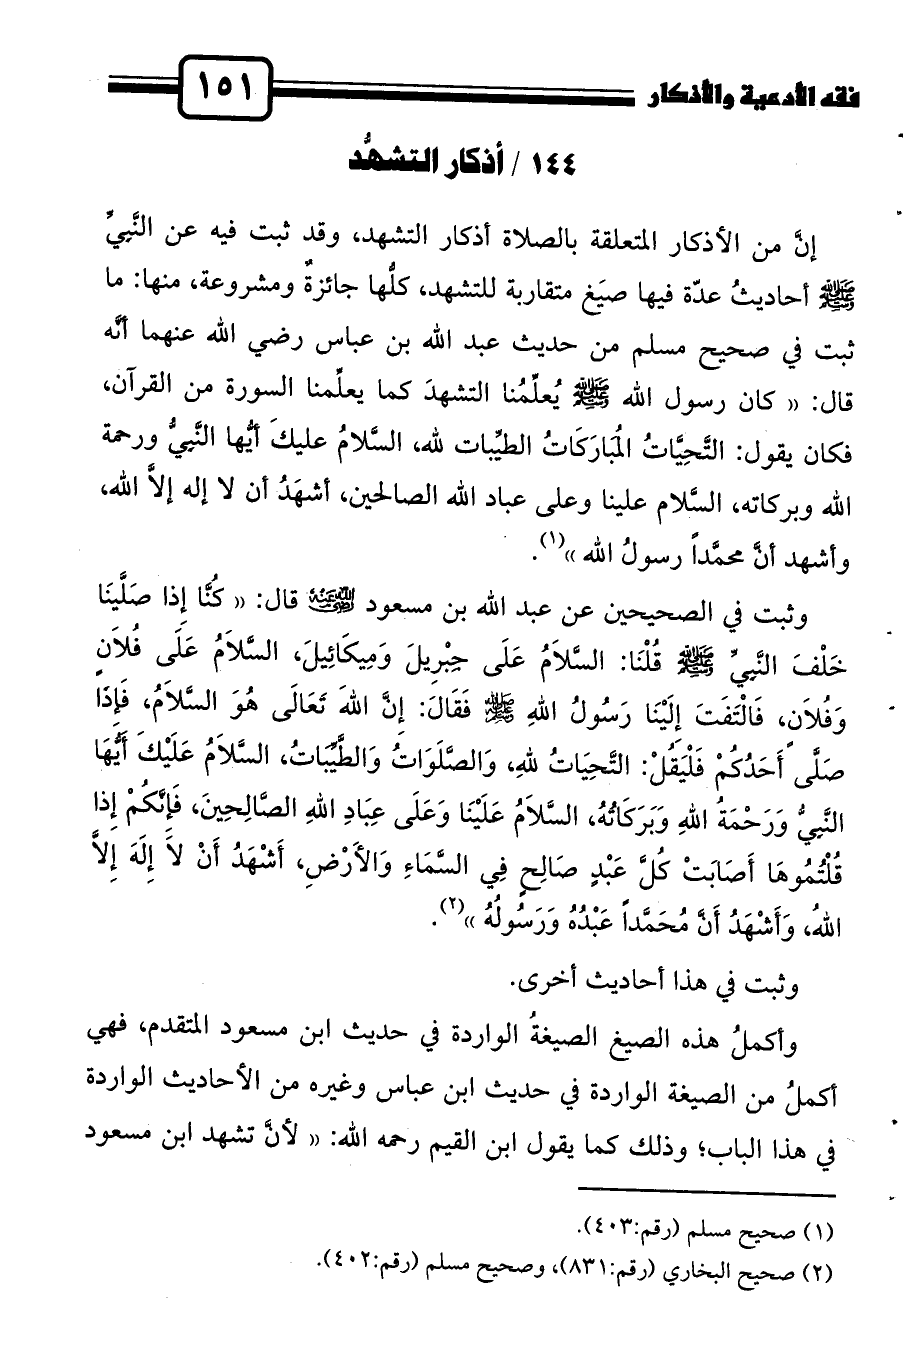 فقه الأدعية والأذكار
١٥١
١٤٤ / أذكار التشهُّد
إنَّ من الأذكار المتعلقة بالصلاة أذكار التشهد، وقد ثبت فيه عن النَّبيِّ
ﷺ أحاديثُ عدّة فيها صيَغ متقاربة للتشهد، كلُّها جائزةٌ ومشروعة، منها: ما
ثبت في صحيح مسلم من حديث عبد الله بن عباس رضي الله عنهما أنَّه
قال: « كان رسول الله ﷺ يُعلِّمُنا التشهدَ كما يعلِّمنا السورة من القرآن،
فكان يقول: التَّحِيَّاتُ المُبَارَكَاتُ الطيِّبات لله، السَّلامُ عليكَ أيُّها النَّبيُّ ورحمة
الله وبركاته، السَّلام علينا وعلى عباد الله الصالحين، أشهَدُ أن لا إله إلاَّ الله،
وأشهد أنَّ محمَّداً رسولُ الله »(١).
وثبت في الصحيحين عن عبد الله بن مسعود رضي الله عنه قال: « كُنَّا إِذا صَلَّيْنَا
خَلْفَ النَّبِيِّ ﷺ قُلْنَا: السَّلاَمُ عَلَى جِبْرِيلَ وَمِيكَائِيلَ، السَّلاَمُ عَلَى فُلاَنٍ
وَفُلاَنٍ، فَالْتَفَتَ إِلَيْنَا رَسُولُ اللهِ ﷺ فَقَالَ: إِنَّ اللهَ تَعَالَى هُوَ السَّلاَمُ، فَإِذَا
صَلَّى أَحَدُكُمْ فَلْيَقُلْ: التَّحِيَاتُ للهِ، وَالصَّلَوَاتُ وَالطَّيِّبَاتُ، السَّلاَمُ عَلَيْكَ أَيُّهَا
النَّبِيُّ وَرَحْمَةُ اللهِ وَبَرَكَاتُهُ، السَّلاَمُ عَلَيْنَا وَعَلَى عِبَادِ اللهِ الصَّالِحِينَ، فَإِنَّكُمْ إِذا
قُلْتُمُوهَا أَصَابَتْ كُلَّ عَبْدٍ صَالِحٍ فِي السَّمَاءِ وَالأَرْضِ، أَشْهَدُ أَنْ لاَ إِلَهَ إِلاَّ
اللهُ، وَأَشْهَدُ أَنَّ مُحَمَّداً عَبْدُهُ وَرَسُولُهُ »(٢).
وثبت في هذا أحاديث أخرى.
وأكملُ هذه الصيغ الصيغةُ الواردة في حديث ابن مسعود المتقدم، فهي
أكملُ من الصيغة الواردة في حديث ابن عباس وغيره من الأحاديث الواردة
في هذا الباب؛ وذلك كما يقول ابن القيم رحمه الله: « لأنَّ تشهد ابن مسعود
(١) صحيح مسلم (رقم:٤٠٣).
(٢) صحيح البخاري (رقم:٨٣١)، وصحيح مسلم (رقم:٤٠٢).